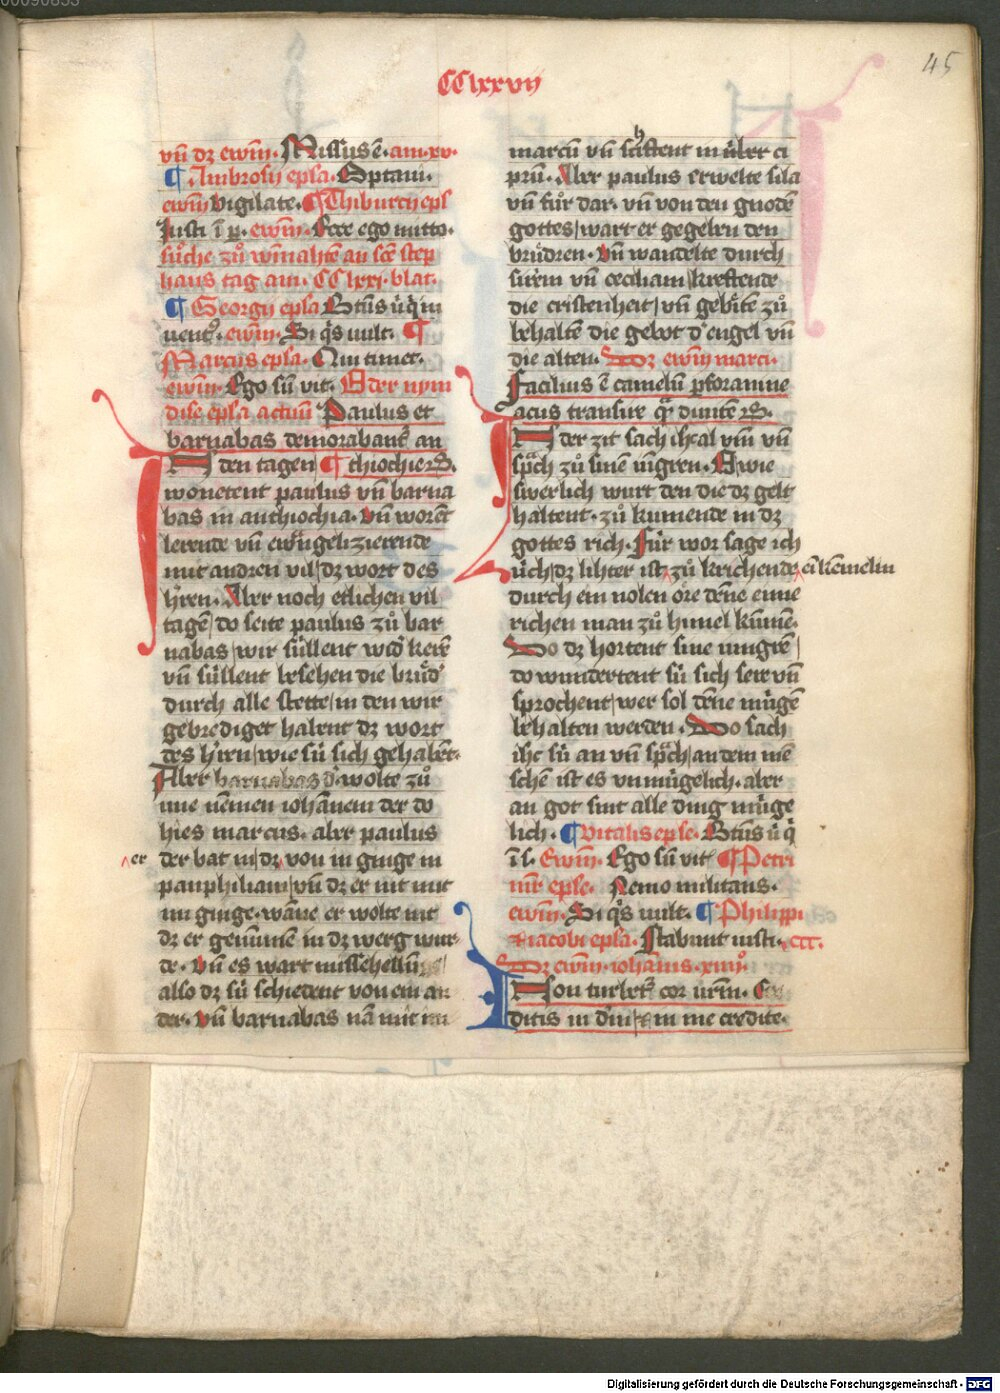 45
CClxxvij
vñ dz ewm̄. Missus ē. am. xv.
¶ Ambrosij epla. Optaui.
ewm̄ vigilate. ¶ Thiburcij epl
Justi ī p. ewm̄. Ecce ego mitto.
sůche zů winnahtē an sc̄t step
hans tag am. CClxxj. blat.
¶ Georgij epla Btūs ů q̇ in
uent⁹. ewm̄. Si q̇s uult. ¶
Marcus epla. Qui timet.
ewm̄. Ego sū vit. Oder nym
dise epla actuū Paulus et
barnabas demorabant᷑ an
IN den tagen ¶ thiochie
wonetent paulus vñ barna
bas in anthiochia. vñ worēt
lerende vñ ewāgelizierende
mit andren vil dz wort des
h̓ren. Aber noch etlichen vil
tagē do seite paulus zů bar
nabas wir süllent wid̓ kerē
vñ süllent besehen die brůd̓
durch alle stette in den wir
gebrediget habent dz wort
des h̓ren wie sü sich gehabēt.
Aber barnabas d̓ wolte zů
ime nēmen iohānem der do
hies marcus. aber paulus
^er der bat in dz von in ginge in
panphiliam vñ dz er nit mit
im ginge. wāne er wolte nit
dz er genūmē in dz werg wur
de. vñ es wart missehellūg
also dz sü schiedent von ein an
der. vñ barnabas nā mit im
marcū vñ schiffent in über ci
prū. Aber paulus erwelte sila
vñ fůr dar. vñ von den gnodē
gottes wart er gegeben den
brůdren. vñ wandelte durch
sirem vñ ceciliam kreftende
die cristenheit vñ gebötē zů
behaltē die gebot d̓ engel vñ
die alten. Dz ewm̄ marci.
Facilius ē camelū p foramine
acus transire q̄ diuitē
IN der zit sach ihc̄ al vm̄ vñ
sp̄ch zů sinē iungren. O wie
swerlich wurt den die dz gelt
haltent. zů kumende in dz
gottes rich. Für wor sage ich
üch dz lihter ist zů kriehende ^ ein kemelin
durch ein nolen öre dēne eime
richen man zů himel kūmē.
Do dz hortent sine iungrē
do wundertent sü sich sere vñ
sprochent wer sol dēne mügē
behalten werden. Do sach
ihc̄ sü an vñ sp̄ch an dem mē
schē ist es vnmügelich. aber
an got sint alle ding müge
lich. ¶ Vitalis eple. Btūs ů q̇
ī s. Ewm̄. Ego sū vit᷑ ¶ Petri
mr̄ eple. Nemo militans.
ewm̄. Si q̇s uult. ¶ Philippi
⁊ iacobi epla. Stabunt iusti. etc.
Dz ewm̄ iohānis. xiiij⁰.
Non turbet᷑ cor ur̄m. Cre
ditis in dm̄ ⁊ in me credite.
Digitalisierung gefördert durch die Deutsche Forschungsgemeinschaft - DFG